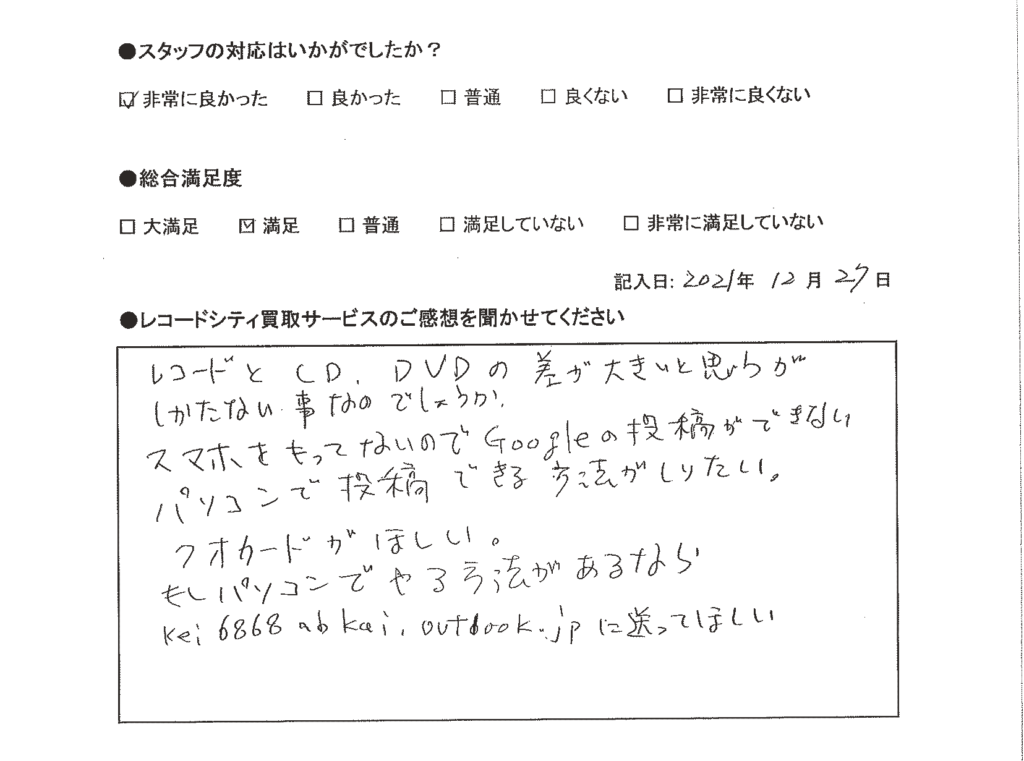 ●スタッフの対応はいかがでしたか？
☑ 非常に良かった □ 良かった □ 普通 □ 良くない □ 非常に良くない
●総合満足度
□ 大満足 ☑ 満足 □ 普通 □ 満足していない □ 非常に満足していない
記入日: 2021年 12月 27日
●レコードシティ買取サービスのご感想を聞かせてください
レコードと CD、DVDの差が大きいと思うが
しかたない事なのでしょうか、
スマホをもってないのでGoogleの投稿ができない
パソコンで投稿できる方法がしりたい。
クオカードがほしい。
もしパソコンでやる方法があるなら
kei6868 に送ってほしい